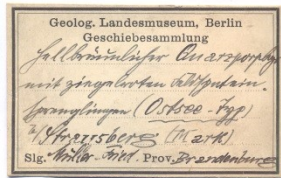 Geolog. Landesmuseum, Berlin
Geschiebesammlung
Hellbräunlicher Quarzporphyr
mit ziegelroten Feldspatein-
sprenglingen (Ostsee-Typ)
Strausberg (Mark)
Slg. Müller Prov. Brandenburg